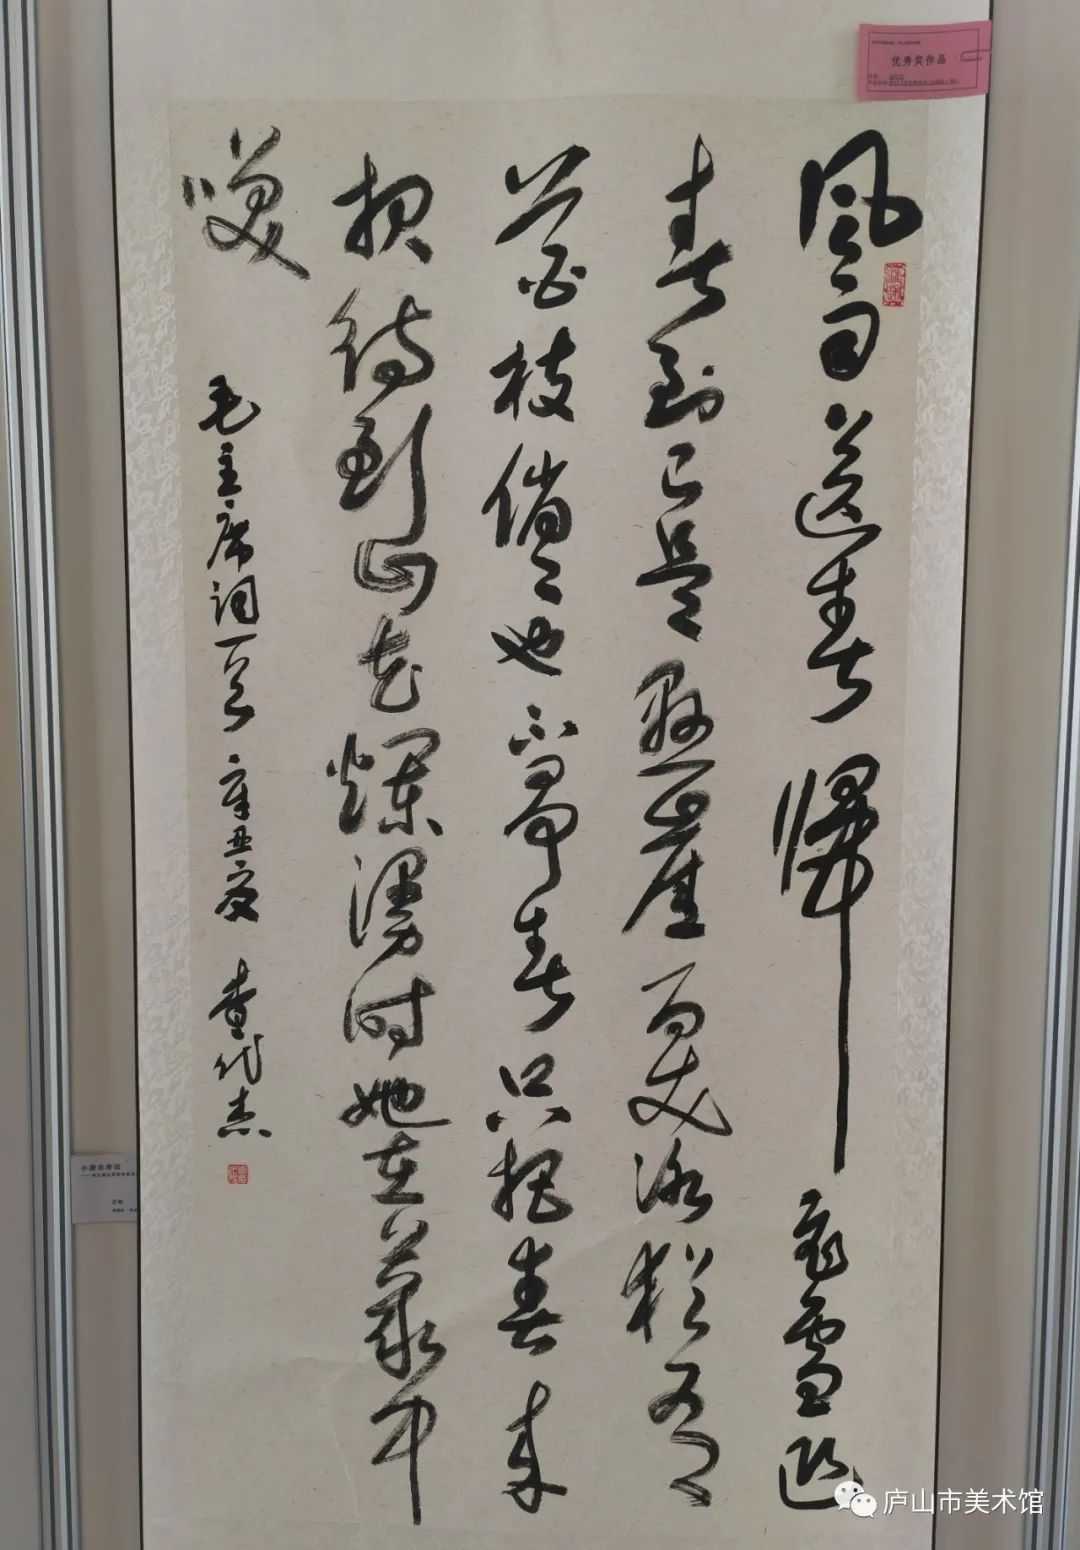 优秀奖作品
风雨送春歸飛雪迎
春到已是懸崖百丈冰猶有
花枝俏々也不争春只把春来
报待到山花爛漫时她在叢中
咲
毛主席词一首 辛丑夏 查代杰
庐山市美术馆